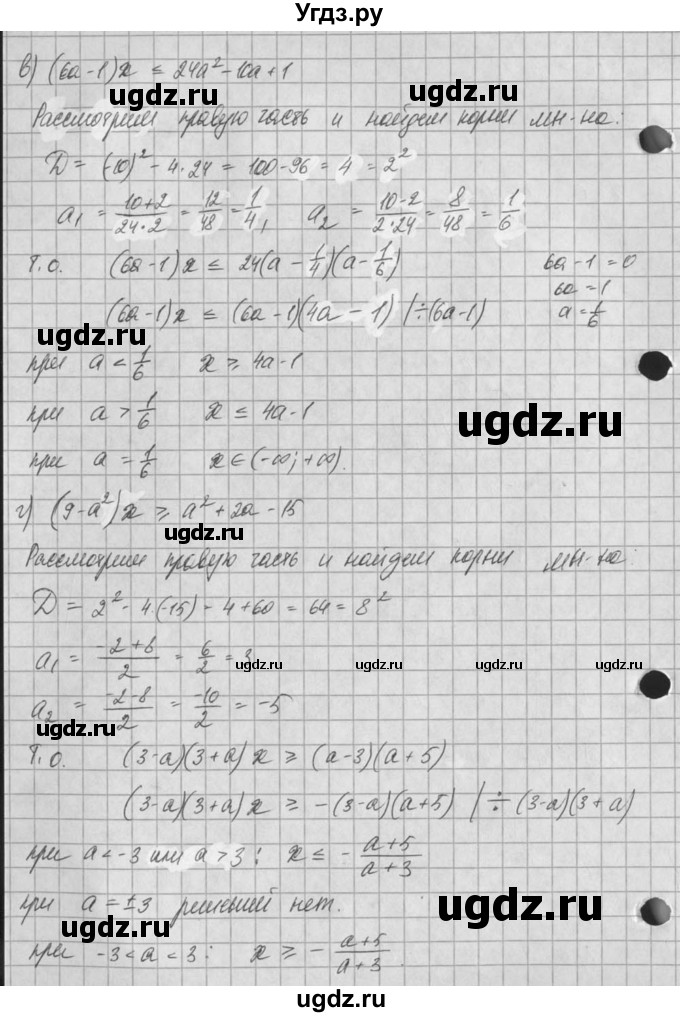 Угдз.ру
в) (6a-1)x ≤ 24a² - 10a + 1
ugdz.ru ugdz.ru
Рассмотрим правую часть и найдем корни мн-на:
D = (-10)² - 4·24 = 100-96 = 4 = 2²
a₁ = (10+2)/(24·2) = 12/48 = 1/4, a₂ = (10-2)/(2·24) = 8/48 = 1/6
ugdz.ru
Т.о. (6a-1)x ≤ 24(a - 1/4)(a - 1/6) 6a-1=0
6a=1
(6a-1)x ≤ (6a-1)(4a - 1) | ÷(6a-1) a=1/6
ugdz.ru
при a < 1/6 x ≥ 4a-1
при a > 1/6 x ≤ 4a-1
ugdz.ru
при a = 1/6 x ∈ (-∞; +∞).
г) (9-a²)x ≥ a² + 2a - 15
ugdz.ru
Рассмотрим правую часть и найдем корни мн-на:
D = 2² - 4·(-15) - 4+60 = 64 = 8²
a₁ = (-2+8)/2 = 6/2 = 3
ugdz.ru ugdz.ru
a₂ = (-2-8)/2 = -10/2 = -5
ugdz.ru
Т.о. (3-a)(3+a)x ≥ (a-3)(a+5)
ugdz.ru
(3-a)(3+a)x ≥ -(3-a)(a+5) | ÷ (3-a)(3+a)
при a < -3 или a > 3: x ≤ - (a+5)/(a+3)
при a = ±3 решений нет.
ugdz.ru
при -3 < a < 3: x ≥ - (a+5)/(a+3).
ugdz.ru
ugdz.ru